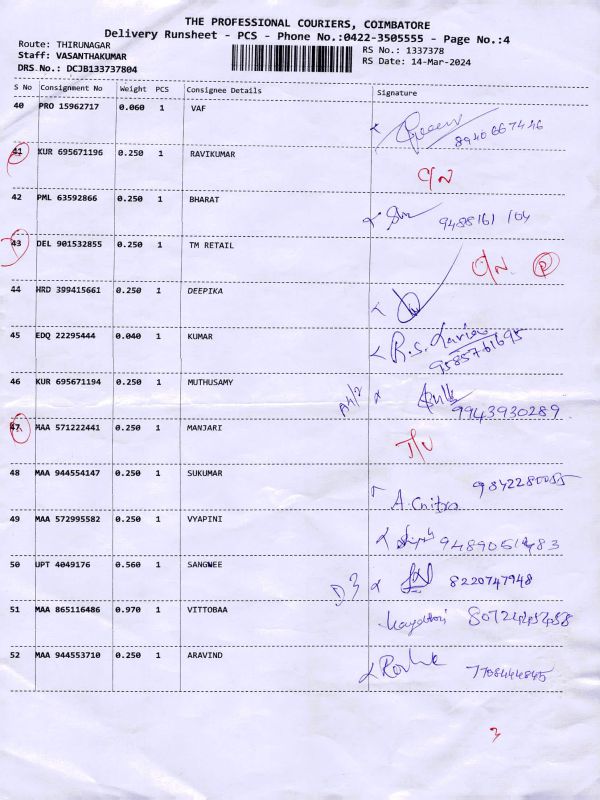 THE PROFESSIONAL COURIERS, COIMBATORE
Delivery Runsheet - PCS - Phone No.:0422-3505555 - Page No.:4
Route: THIRUNAGAR
RS No.: 1337378
Staff: VASANTHAKUMAR
RS Date: 14-Mar-2024
DRS.No.: DCJB133737804
S No Consignment No Weight PCS Consignee Details Signature
40 PRO 15962717 0.060 1 VAF
8940667446
41 KUR 695671196 0.250 1 RAVIKUMAR
C/N
42 PML 63592866 0.250 1 BHARAT
9488161104
43 DEL 901532855 0.250 1 TM RETAIL
C/N. P
44 HRD 399415661 0.250 1 DEEPIKA
45 EDQ 22295444 0.040 1 KUMAR
R.S.
9585761695
46 KUR 695671194 0.250 1 MUTHUSAMY
9943930289
47 MAA 571222441 0.250 1 MANJARI
48 MAA 944554147 0.250 1 SUKUMAR
A. Chitra
49 MAA 572995582 0.250 1 VYAPINI
50 UPT 4049176 0.560 1 SANGNEE
D3 8220747948
51 MAA 865116486 0.970 1 VITTOBAA
52 MAA 944553710 0.250 1 ARAVIND
7708444845
3